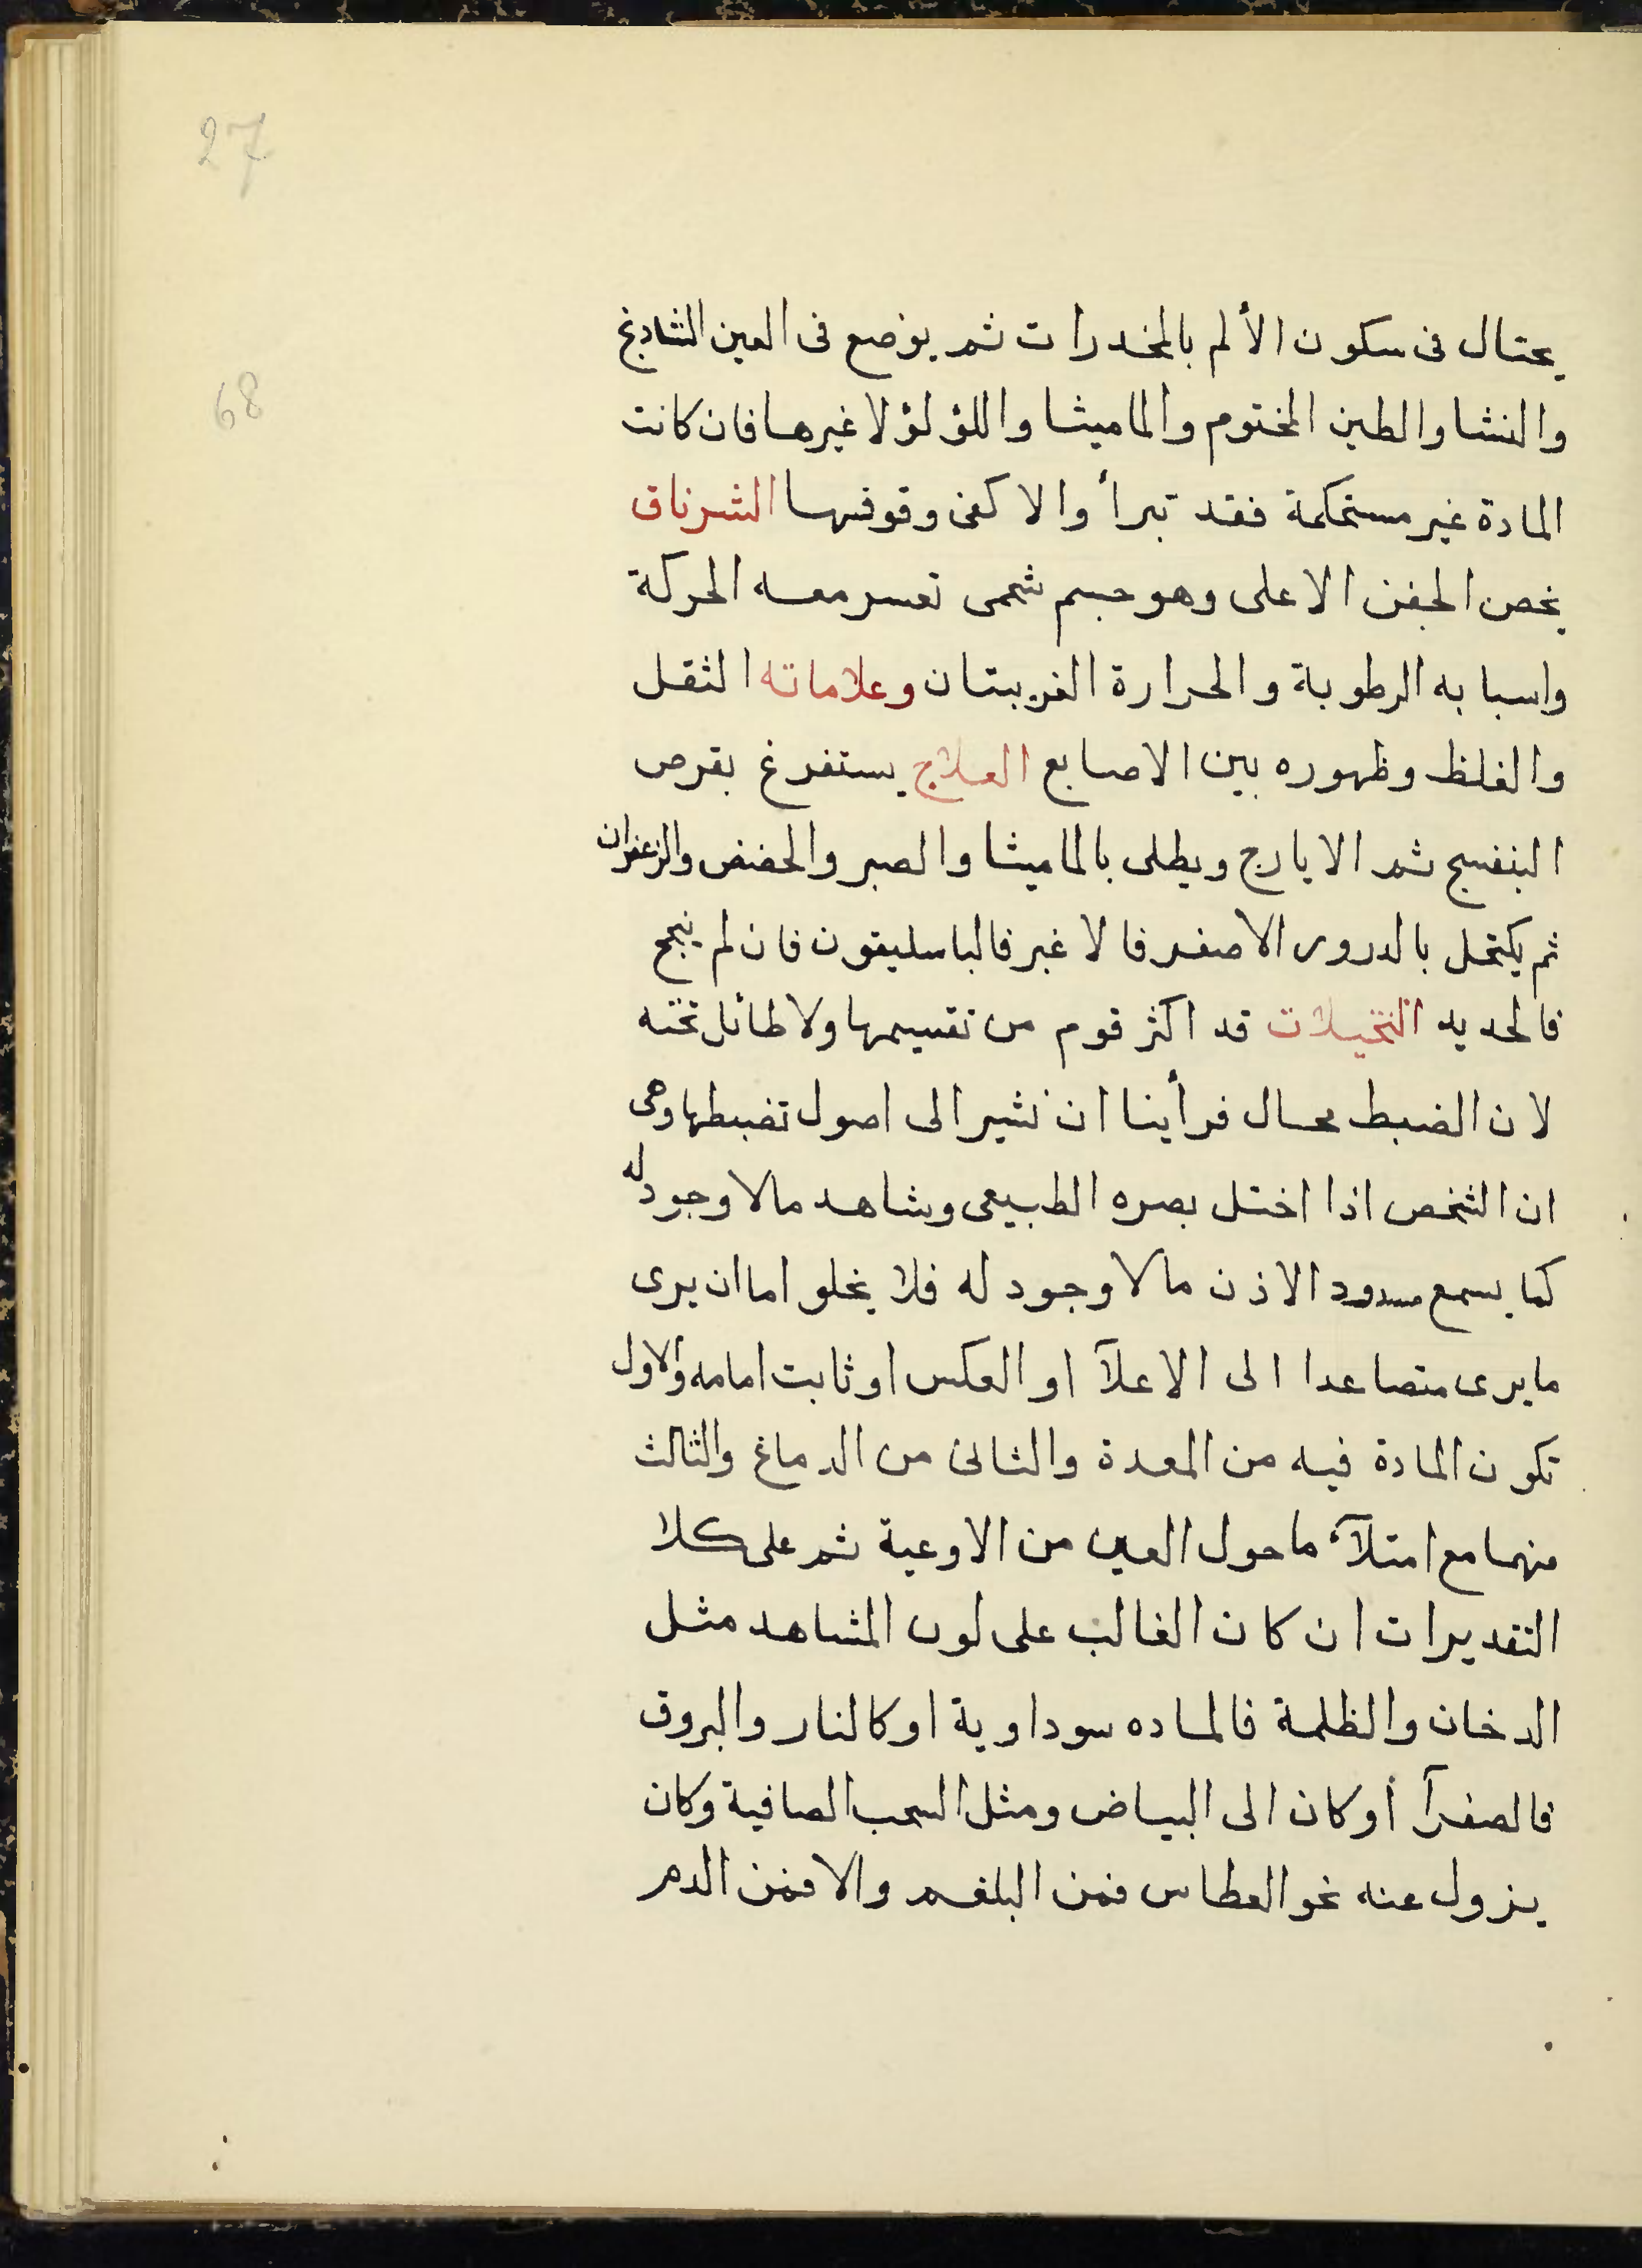 27
68
يحتال فى سكون الألم بالمخدرات ثم يوضع فى العين الشاديج
والنشا والطين المختوم والماميثا واللؤلؤ لا غيرها فان كانت
المادة غير مستحكمة فقد تبرأ والا كفى وقوفها الشرناق
يخص الجفن الاعلى وهو جسم شحمى تعسر معه الحركة
واسبابه الرطوبة والحرارة الغريبتان وعلاماته الثقل
والغلظ وظهوره بين الاصابع العلاج يستفرغ بقرص
البنفسج ثم الايارج ويطلى بالماميثا والصبر والحضض والزعفران
ثم يكتحل بالدرور الاصفر فالاغبر فالباسليقون فان لم ينجح
فالحديد التخيلات قد اكثر قوم من تقسيمها ولا طائل تحته
لان الضبط محال فرأينا ان نشير الى اصول تضبطها وهى
ان الشخص اذا اختل بصره الطبيعى وشاهد مالا وجود له
كما يسمع مسدود الاذن مالا وجود له فلا يخلو اما ان يرى
ما يرى متصاعدا الى الاعلآ او العكس او ثابت امامه والاول
تكون المادة فيه من المعدة والثانى من الدماغ والثالث
منهما مع امتلآء ما حول العين من الاوعية ثم على كلا
التقديرات ان كان الغالب على لون المشاهد مثل
الدخان والظلمة فالماده سوداوية او كالنار والبروق
فالصفرآ أو كان الى البياض ومثل السحب الصافية وكان
يزول عنه نحو العطاس فمن البلغم والا فمن الدم